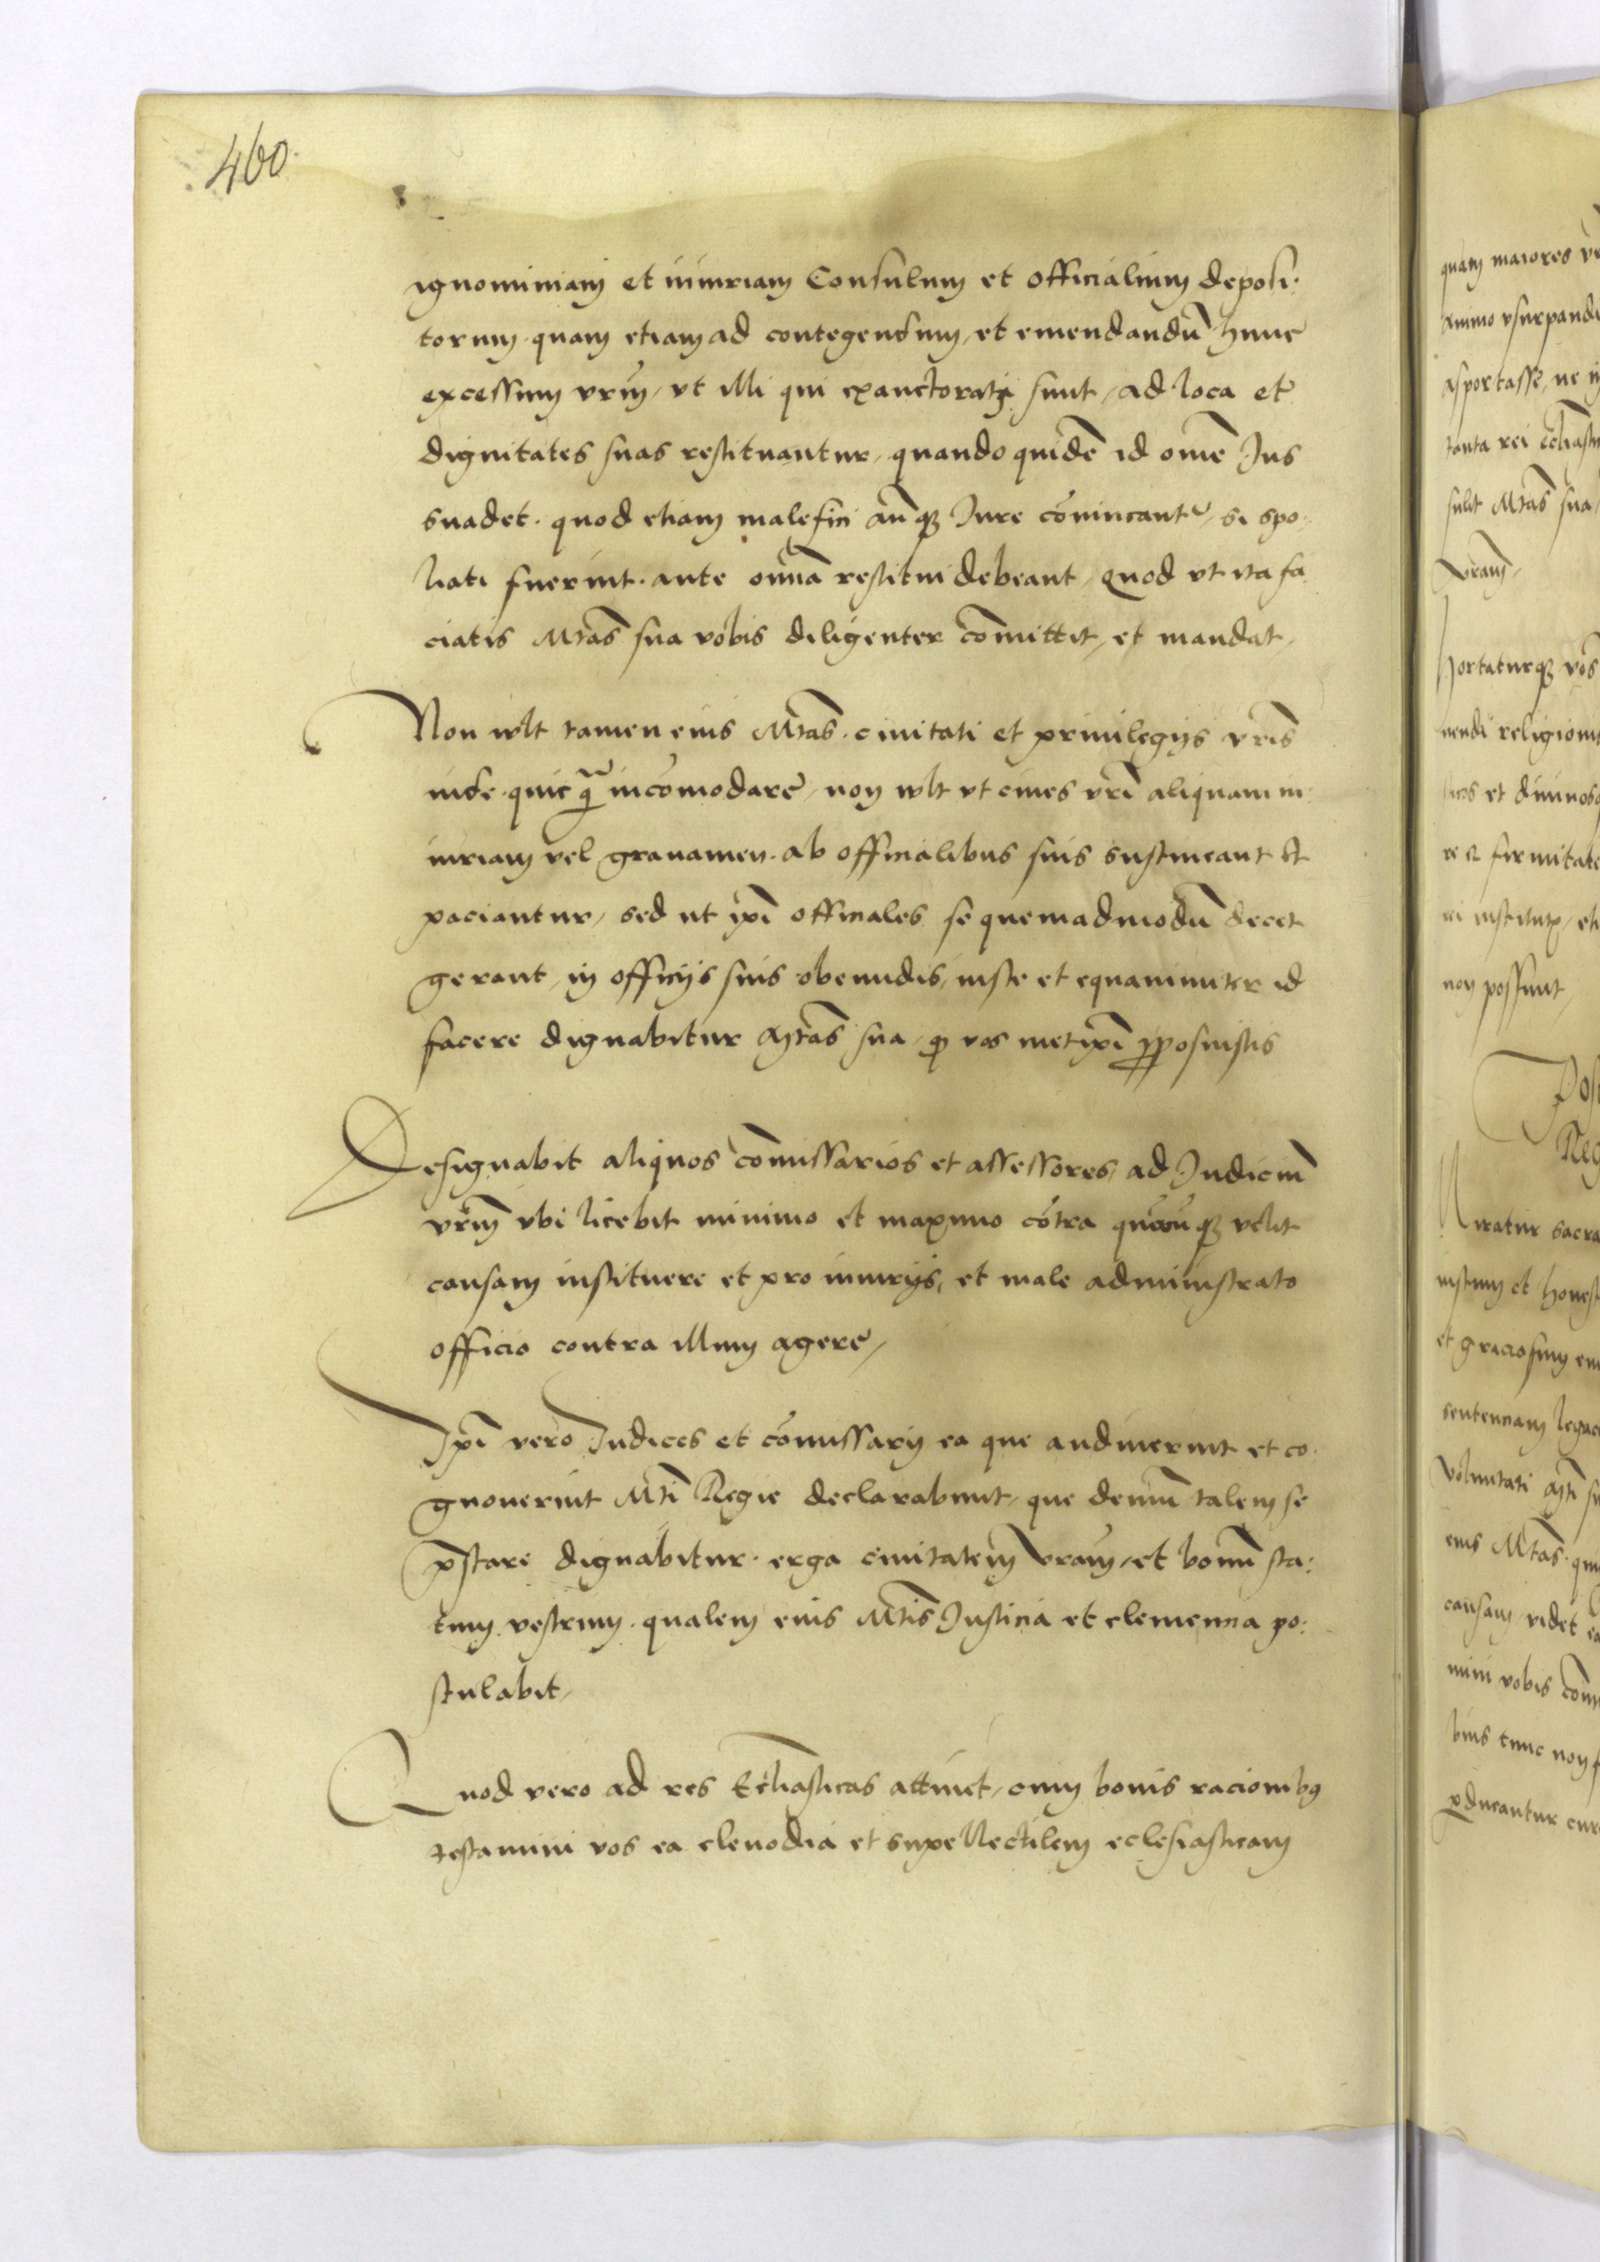 460.
ignominiam et iniuriam Consulum et officialium deposi-
torum. quam etiam ad contegendum, et emendandũ hunc
excessum vrm̃, vt illi qui exauctorati sunt, ad loca et
dignitates suas restituantur, quando quidẽ id om̃e Ius
suadet. quod etiam malefici añ qꝫ Iure cõuincant', si spo-
liati fuerint. ante om̃ia restitui debeant, Quod vt ita fa
ciatis Mtas̃ sua vobis diligenter cõmittit, et mandat,
Non wlt tamen eius Mtas̃. ciuitati et priuilegijs vris̃
inde. quicq̃ incõmodare, non wlt vt ciues vrĩ aliquam in-
iuriam vel grauamen. ab officialibus suis sustineant et
paciantur, sed ut ip̃i officiales se quemadmodũ decet
gerant, in officijs suis obeundis, iuste et equanimiter id
facere dignabitur Mtas̃ sua, q̃ vos metip̃i p̱posuistis
Designabit aliquos cõmissarios et assessores, ad Iudiciũ
vrm̃ vbi licebit minimo et maximo cõtra quẽcũ qꝫ velit
causam instituere et pro iniurijs, et male administrato
officio contra illum agere,
Ip̃i vero Iudices et cõmissarij ea que audiuerint et co-
gnouerint Mtĩ Regie declarabunt, que demũ talem se
p̃stare dignabitur. erga ciuitatem vram̃, et bonũ sta-
tum vestrum. qualem eius Mtis̃ Iusticia et clemencia po-
stulabit,
Quod vero ad res Ecc̃liasticas attinet, cum bonis racionibꝫ
testamini vos ea clenodia et supellectilem eclesiasticam
quam maiores
animo vsurpandi
asportasse, ne
tanta rei
sulit Mtas̃ sua,
vram̃,
hortaturqꝫ vos
uendi religionis
et diuinos
re et firmitate
ri
non possunt,
Post
Reg
Miratur sacra
iustum et honest
et graciosum
sentenciam legac
voluntati Mtĩ
eius Mtas̃. qui
causam videt
mini vobis com̃
bus tunc non
p̱ducantur